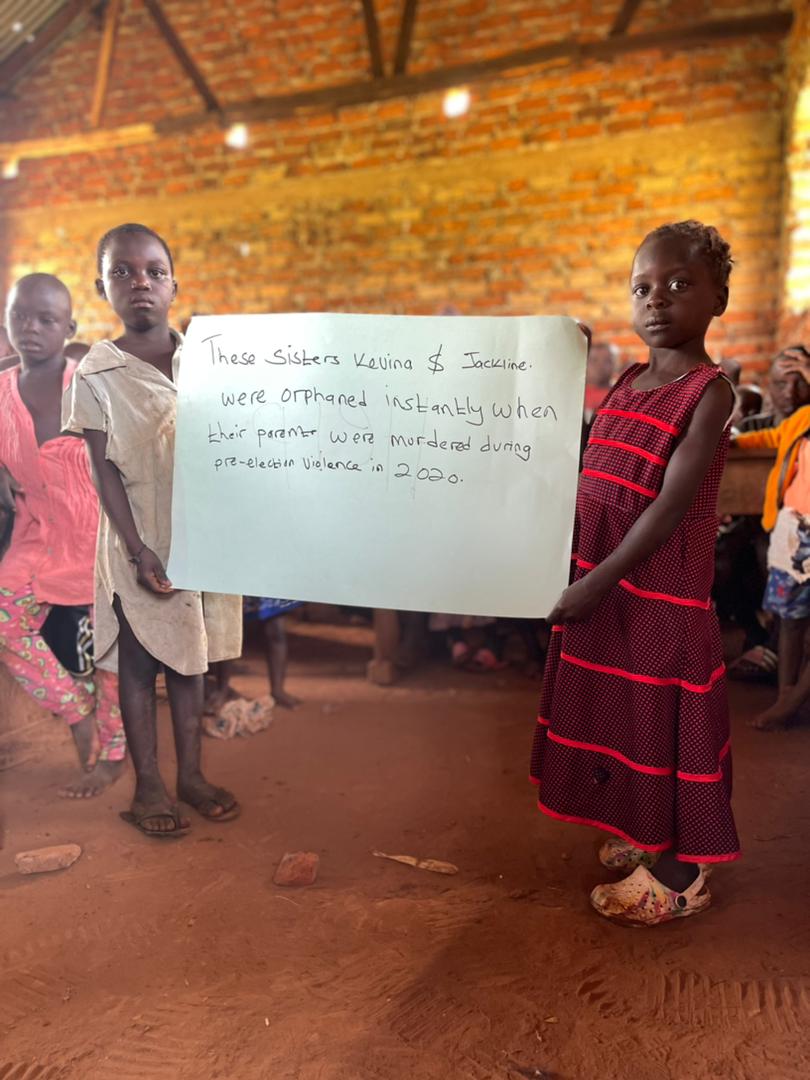 These Sisters Kevina $ Jackline.
were orphaned instantly when
their parents were murdered during
pre-election Violence in 2020.